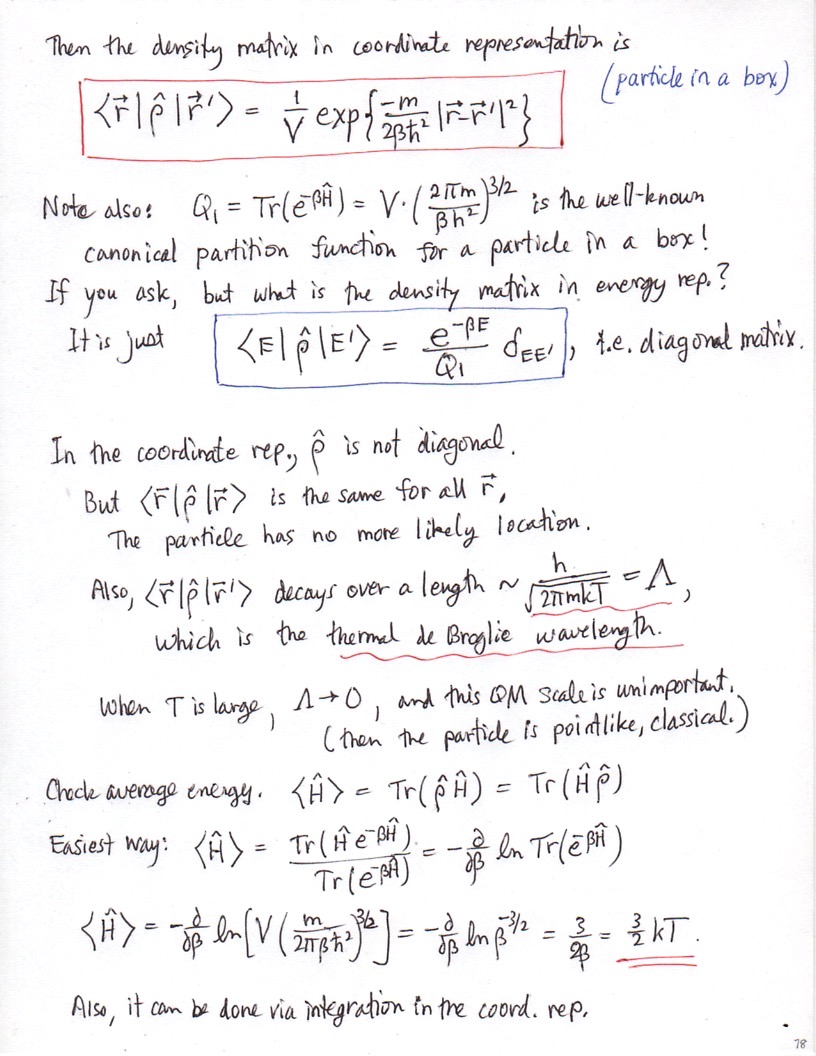 Then the density matrix in coordinate representation is
(particle in a box)
⟨r⃗|ρ̂|r⃗'⟩ = 1/V exp{-m/2βħ² |r⃗-r⃗'|²}
Note also: Q₁ = Tr(e^{-βĤ}) = V·(2πm/βh²)^{3/2} is the well-known
canonical partition function for a particle in a box!
If you ask, but what is the density matrix in energy rep.?
It is just ⟨E|ρ̂|E'⟩ = e^{-βE}/Q₁ δ_{EE'}, i.e. diagonal matrix.
In the coordinate rep., ρ̂ is not diagonal.
But ⟨r⃗|ρ̂|r⃗⟩ is the same for all r⃗,
The particle has no more likely location.
Also, ⟨r⃗|ρ̂|r⃗'⟩ decays over a length ~ h/√(2πmkT) = Λ,
which is the thermal de Broglie wavelength.
When T is large, Λ→0, and this QM scale is unimportant.
(then the particle is pointlike, classical.)
Check average energy. ⟨Ĥ⟩ = Tr(ρ̂Ĥ) = Tr(Ĥρ̂)
Easiest way: ⟨Ĥ⟩ = Tr(Ĥe^{-βĤ})/Tr(e^{-βĤ}) = -∂/∂β ln Tr(e^{-βĤ})
⟨Ĥ⟩ = -∂/∂β ln[V(m/2πβħ²)^{3/2}] = -∂/∂β ln β^{-3/2} = 3/2β = 3/2 kT.
Also, it can be done via integration in the coord. rep.
78